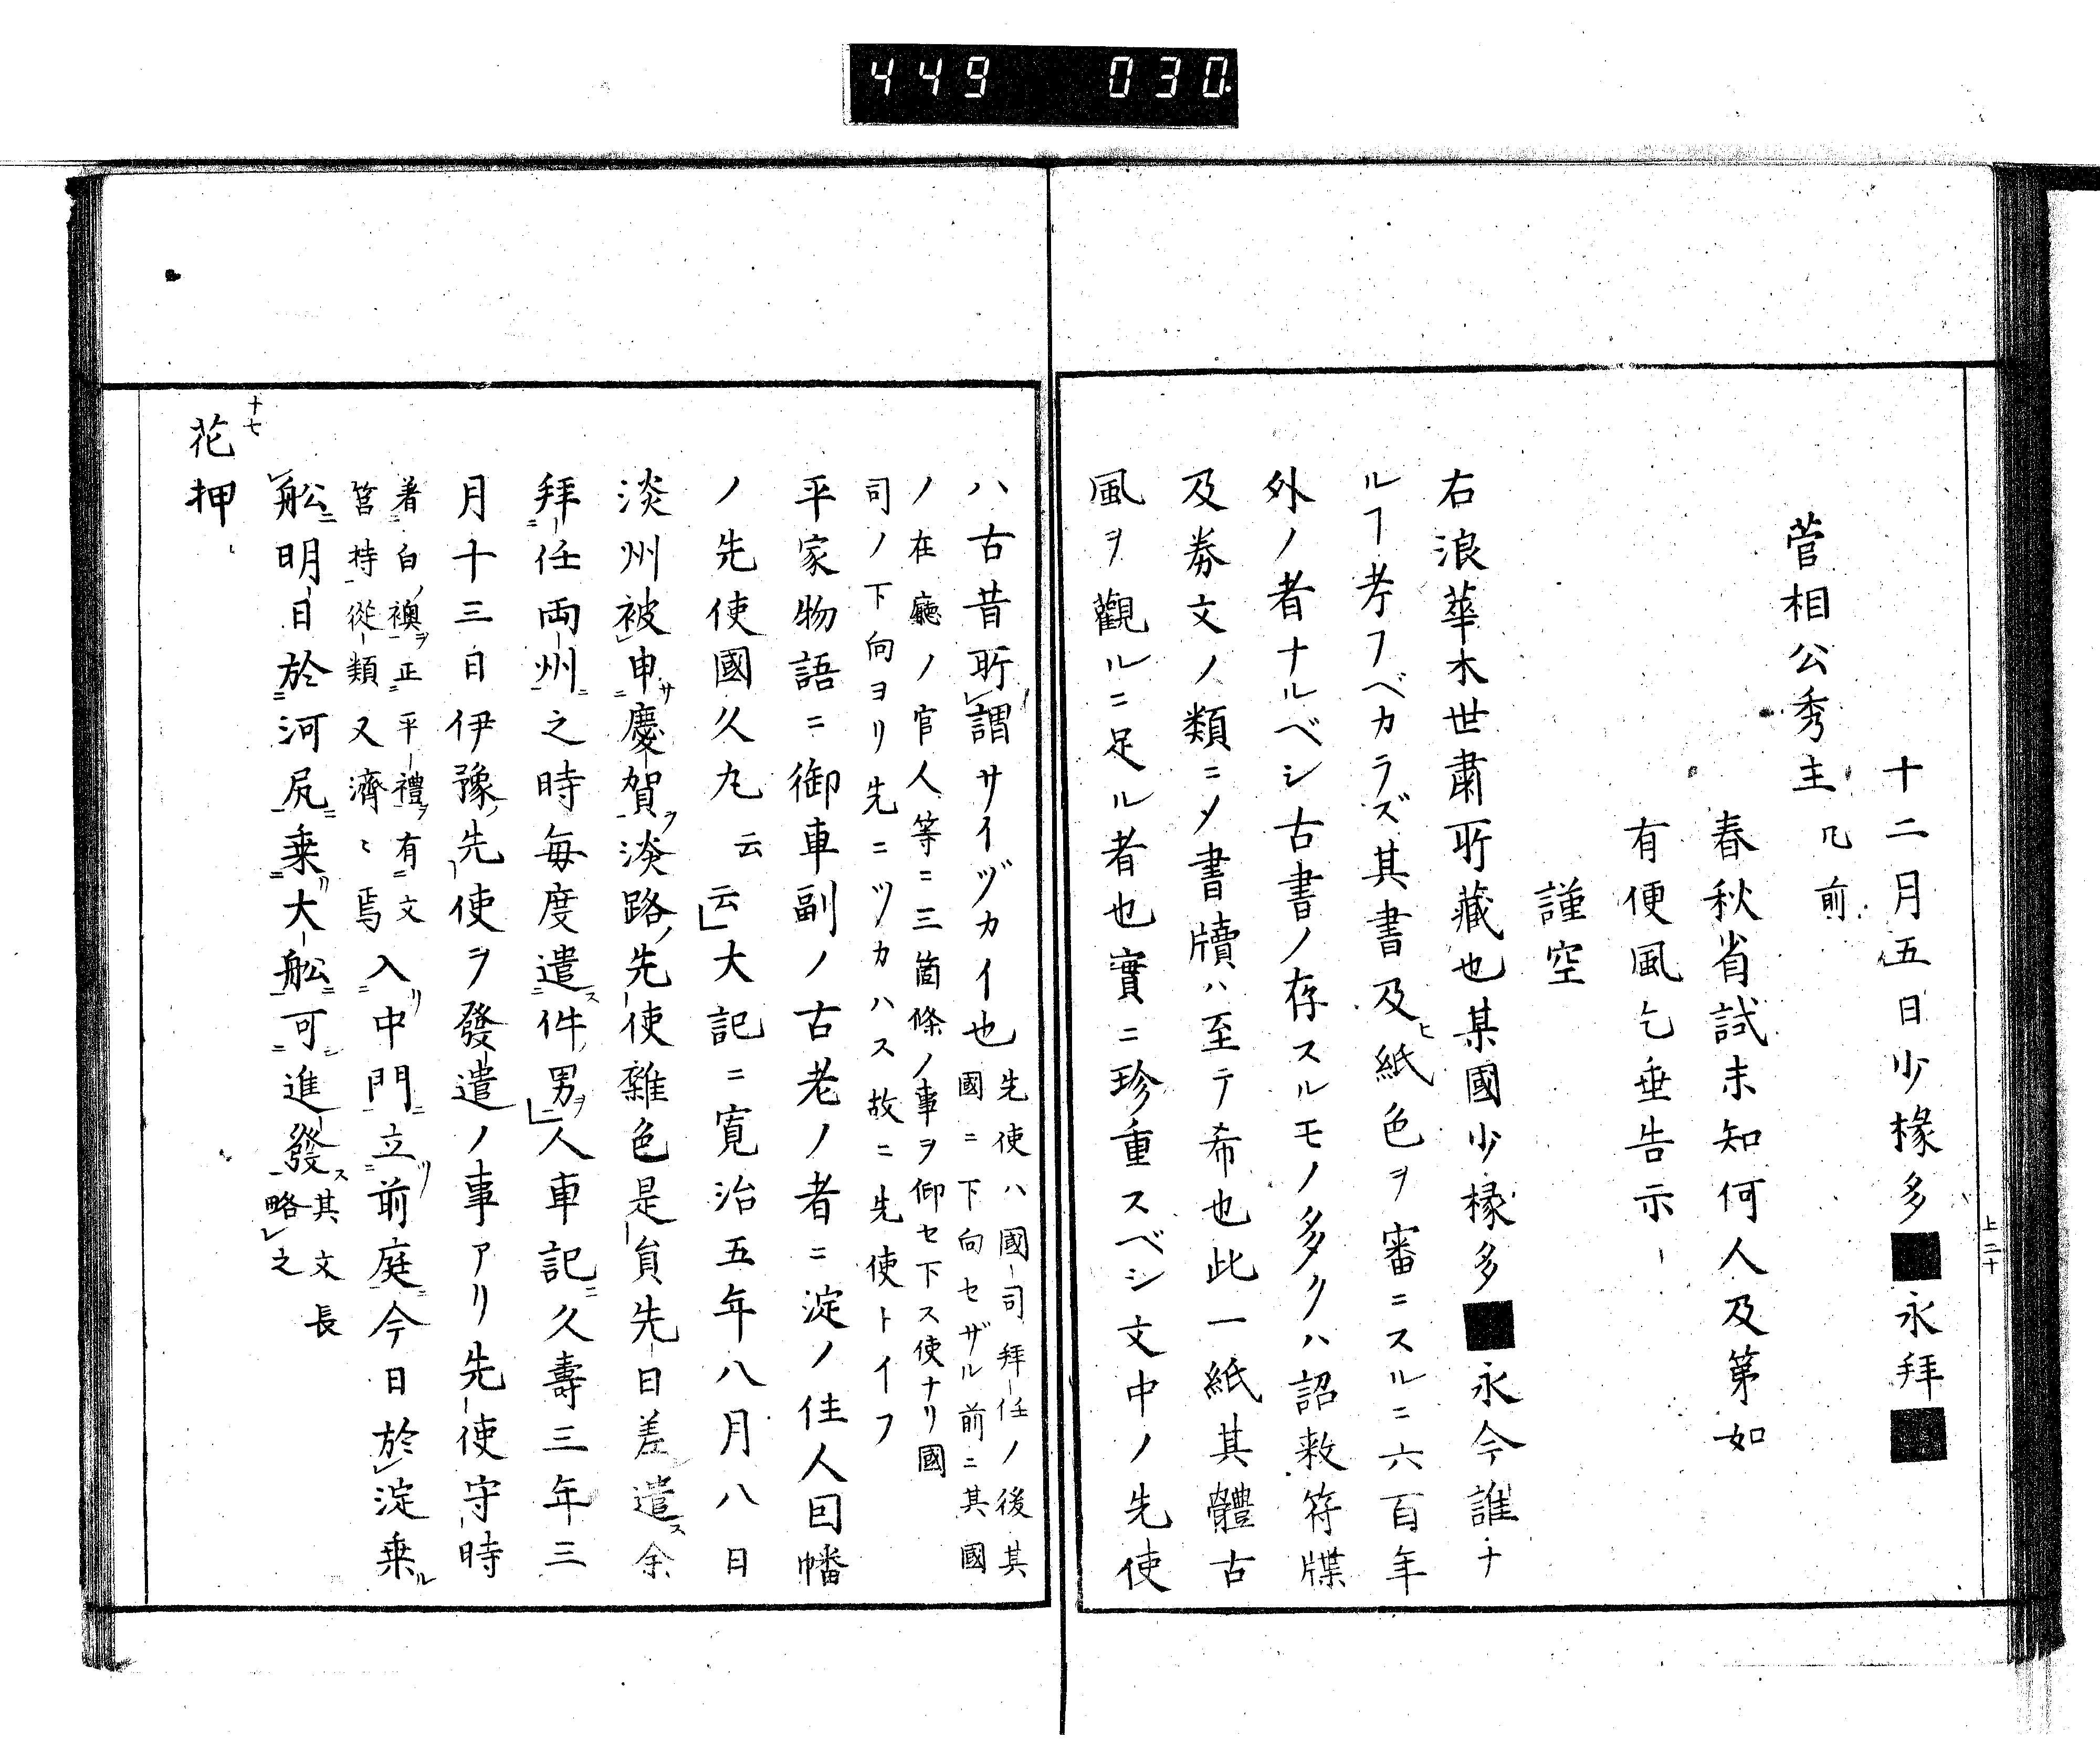 449 030
上二十
十二月五日少椽多■永拜■
菅相公秀主几前
春秋省試未知何人及第如
有便風乞垂告示
謹空
右浪華木世肅所藏也某國少椽多■永今誰ナ
ルヿ考フベカラズ其書及ヒ紙色ヲ審ニスルニ六百年
外ノ者ナルベシ古書ノ存スルモノ多クハ詔敕符牒
及券文ノ類ニメ書牘ハ至テ希也此一紙其體古
風ヲ觀ルニ足ル者也實ニ珍重スベシ文中ノ先使
ハ古昔所謂サイヅカイ也先使ハ國司拜任ノ後其
國ニ下向セザル前ニ其國
ノ在廳ノ官人等ニ三箇條ノ事ヲ仰セ下ス使ナリ國
司ノ下向ヨリ先ニツカハス故ニ先使トイフ
平家物語ニ御車副ノ古老ノ者ニ淀ノ住人囙幡
ノ先使國久丸云云」大記ニ寛治五年八月八日
淡州被申慶賀淡路先使雜色是貟先日差遣余
拜任両州之時毎度遣件男」人車記久壽三年三
月十三日伊豫先使ヲ發遣ノ事アリ先使守時
着白襖正平禮有文
筥持從類又濟〻焉入中門立前庭今日於淀乗
舩明日於河尻乗大舩可進發其文長
略之
十七
花押